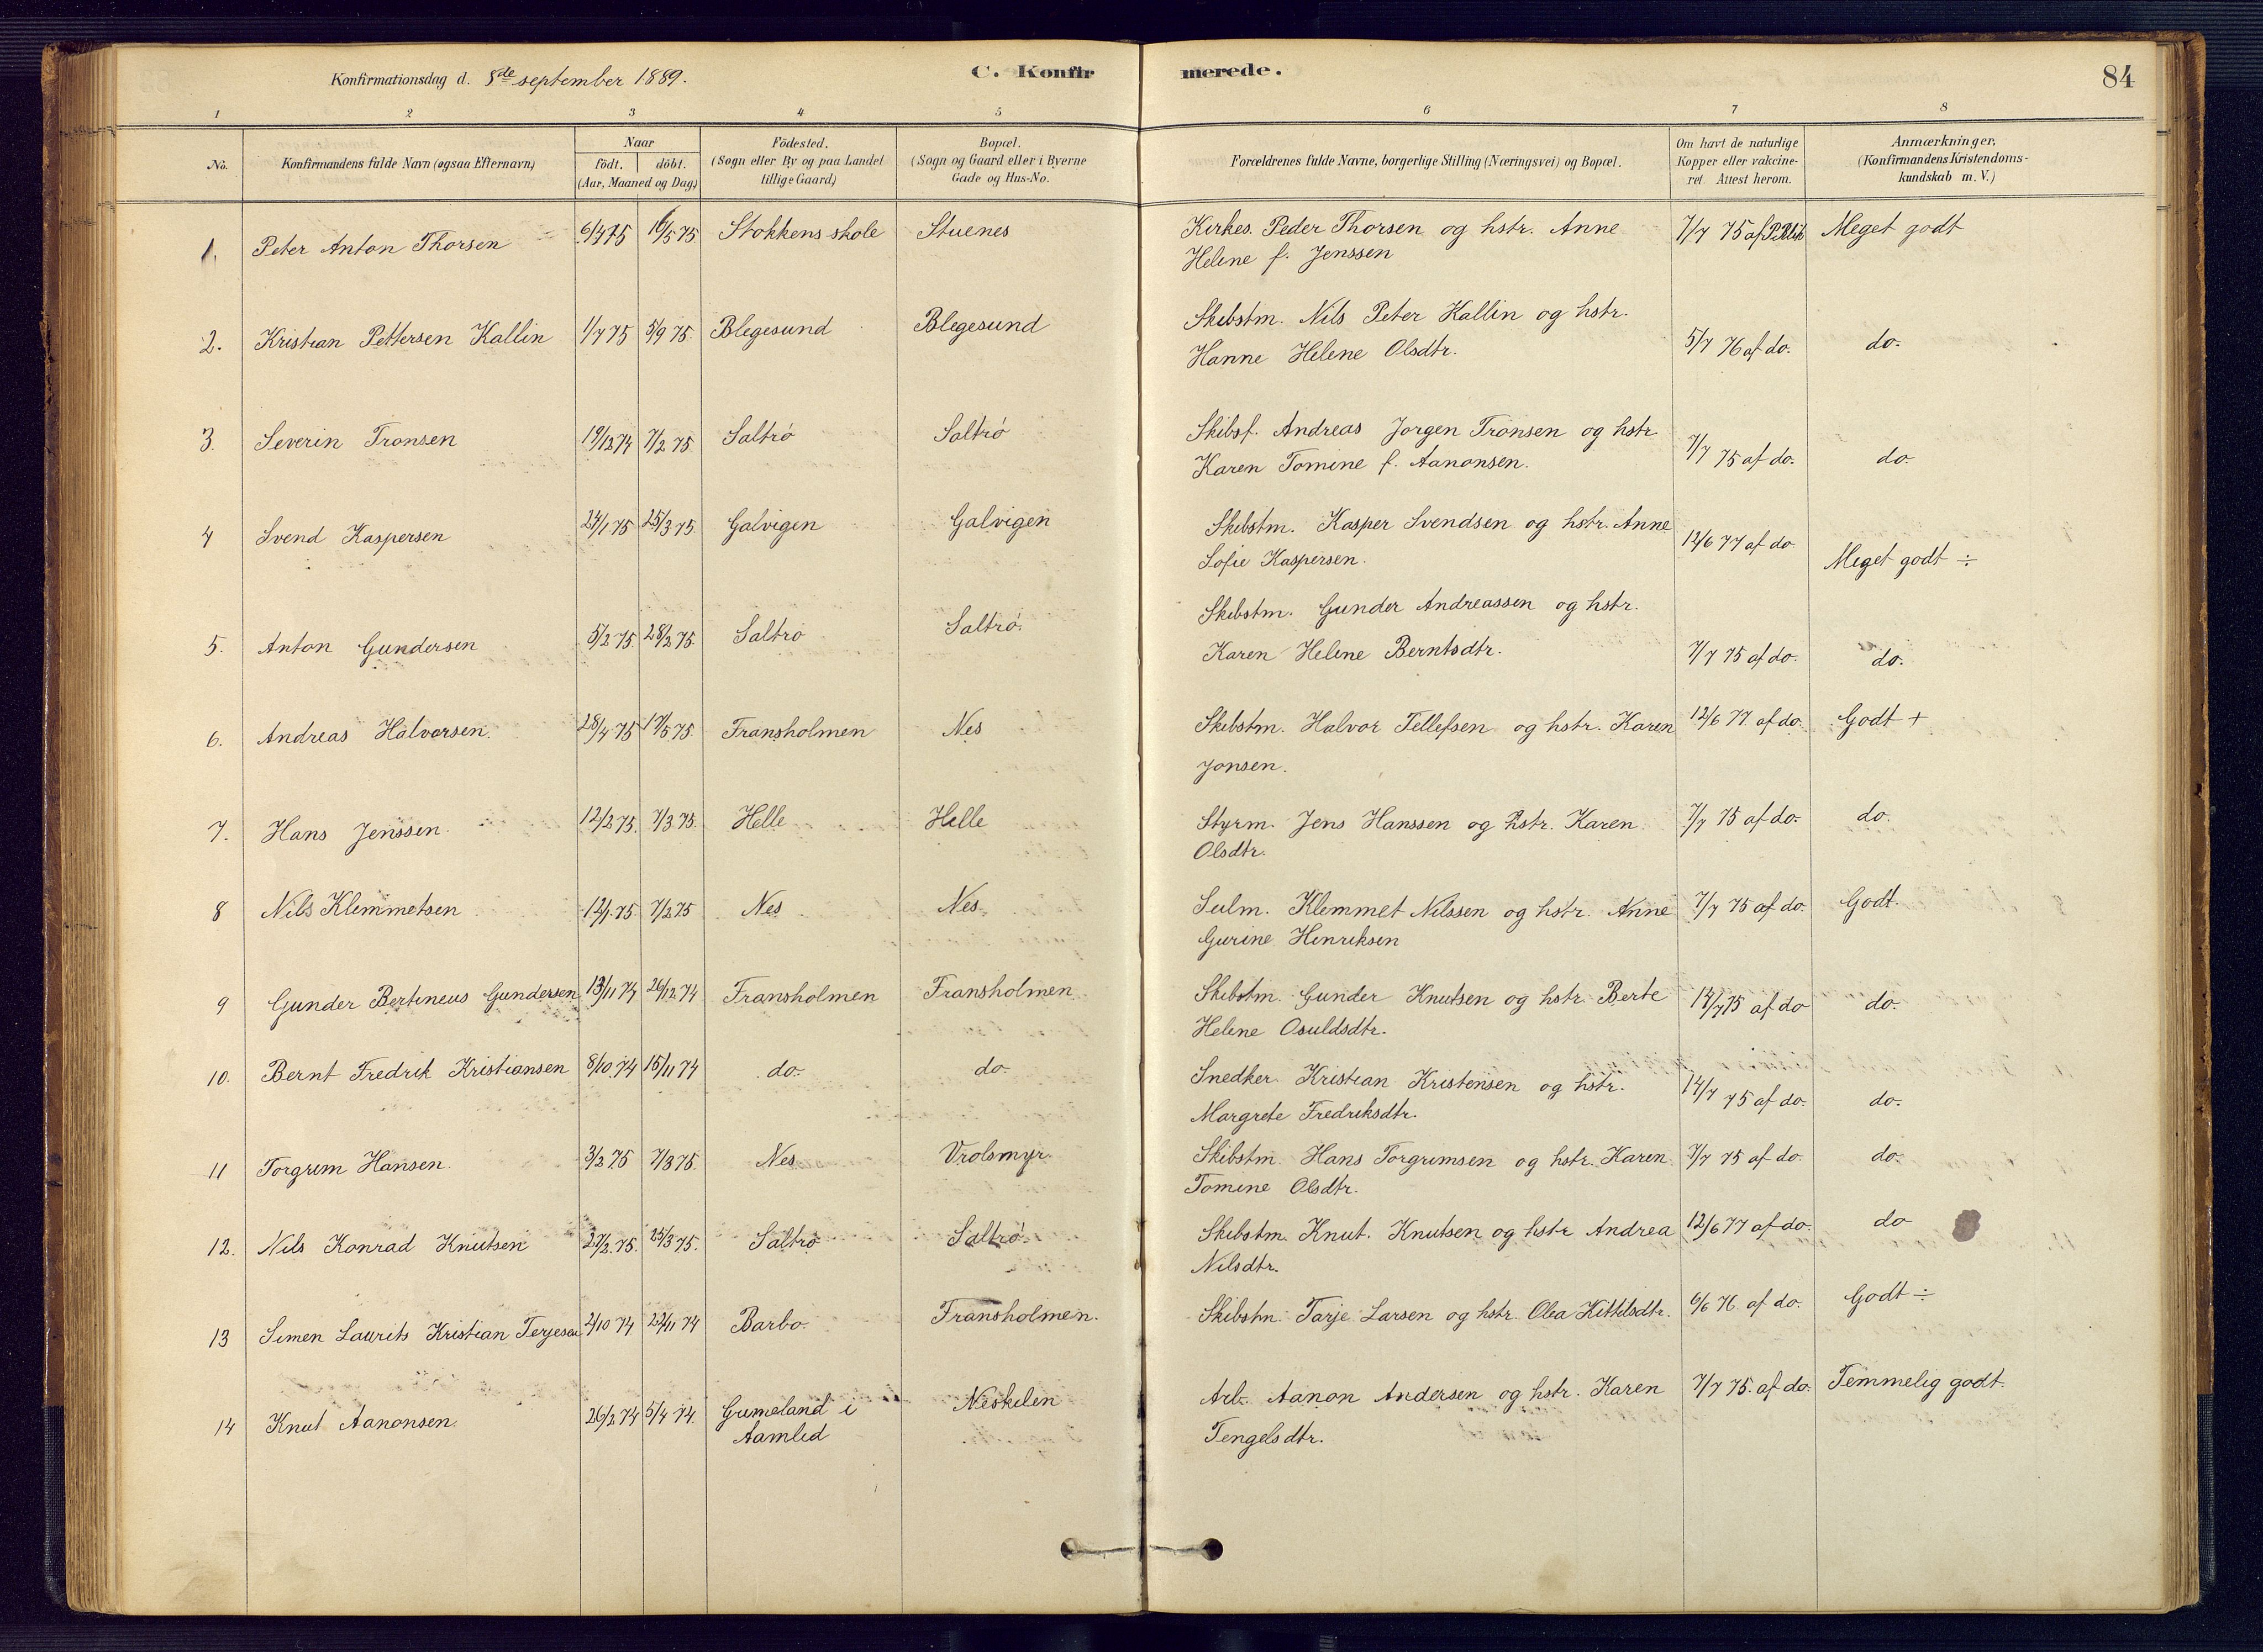 Konfirmationsdag d. 8de september 1889.
C. Konfirmerede.
84
1 2 3 4 5 6 7 8
No.
Konfirmandens fulde Navn (ogsaa Efternavn)
Naar
födt. döbt.
(Aar, Maaned og Dag)
Födested.
(Sogn eller By og paa Landet
tillige Gaard)
Bopæl.
(Sogn og Gaard eller i Byerne
Gade og Hus-No.
Forældrenes fulde Navne, borgerlige Stilling (Næringsvei) og Bopæl.
Om havt de naturlige
Kopper eller vakcine-
ret. Attest herom.
Anmærkninger.
(Konfirmandens Kristendoms-
kundskab m. V.)
1. Peter Anton Thorsen 6/4 75 16/5 75 Stokkens skole Stuenes Kirkes. Peder Thorsen og hstr. Anne 7/7 75 af Meget godt
Helene f. Jenssen
2. Kristian Pettersen Kallin 1/7 75 5/9 75. Blegesund Blegesund Skibstm. Nils Peter Kallin og hstr. 5/7 76 af do. do.
Hanne Helene Olsdtr.
3. Severin Tronsen 19/12 74 7/2 75 Saltrö Saltrö Skibsf. Andreas Jorgen Tronsen og hstr 7/7 75 af do. do.
Karen Tomine f. Aanonsen.
4 Svend Kaspersen 24/1 75 25/3 75. Galvigen Galvigen Skibstm. Kasper Svendsen og hstr. Anne 12/6 77 af do. Meget godt ÷
Sofie Kaspersen.
5. Anton Gundersen 5/2 75. 28/2 75. Saltrö Saltrö. Skibstm. Gunder Andreassen og hstr. 7/7 75 af do. do.
Karen Helene Berntsdtr.
6. Andreas Halvorsen. 28/4 75 17/5 75. Fransholmen Nes Skibstm. Halvor Tellefsen og hstr. Karen 12/6 77. af do. Godt +
Jonsen.
7. Hans Jenssen. 12/2 75. 7/3 75. Helle Helle Styrm. Jens Hanssen og hstr. Karen 7/7 75 af do. do.
Olsdtr.
8 Nils Klemmetsen 12/1 75. 7/2 75 Nes Nes. Seilm. Klemmet Nilssen og hstr. Anne 7/7 75 af do. Godt.
Gurine Henriksen
9 Gunder Bertineus Gundersen 13/11 74 26/12 74 Fransholmen Fransholmen Skibstm. Gunder Knutsen og hstr. Berte 14/7 75 af do do.
Helene Osuldsdtr.
10. Bernt Fredrik Kristiansen 8/10 74 15/11 74 do. do. Snedker. Kristian Kristensen og hstr. 14/7 75 af do. do.
Margrete Fredriksdtr.
11 Torgrim Hansen. 3/2 75 7/3 75. Nes Vrolsmyr. Skibstm. Hans Torgrimsen og hstr. Karen 7/7 75 af do. do.
Tomine Olsdtr.
12. Nils Konrad Knutsen 27/2 75. 25/3 75. Saltrö Saltrö Skibstm. Knut. Knutsen og hstr Andrea 12/6 77 af do. do
Nilsdtr.
13 Simen Laurits Kristian Terjesen 2/10 74 22/11 74 Barbo. Fransholmen. Skibstm. Tarje Larsen og hstr. Olea Kittilsdtr. 6/6 76. af do. Godt ÷
14 Knut Aanonsen. 26/2 74 5/4 74. Gumeland i Neskilen Arb. Aanon Andersen og hstr. Karen 7/7 75. af do. Temmelig godt.
Aamlid Tengelsdtr.